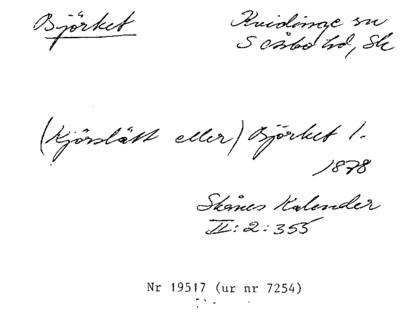 Björket
Kvidinge sn
S Åsbo hd, Sk
(Kjörslätt eller) Björket 1.
1878
Skånes Kalender
II:2:355
Nr 19517 (ur nr 7254)